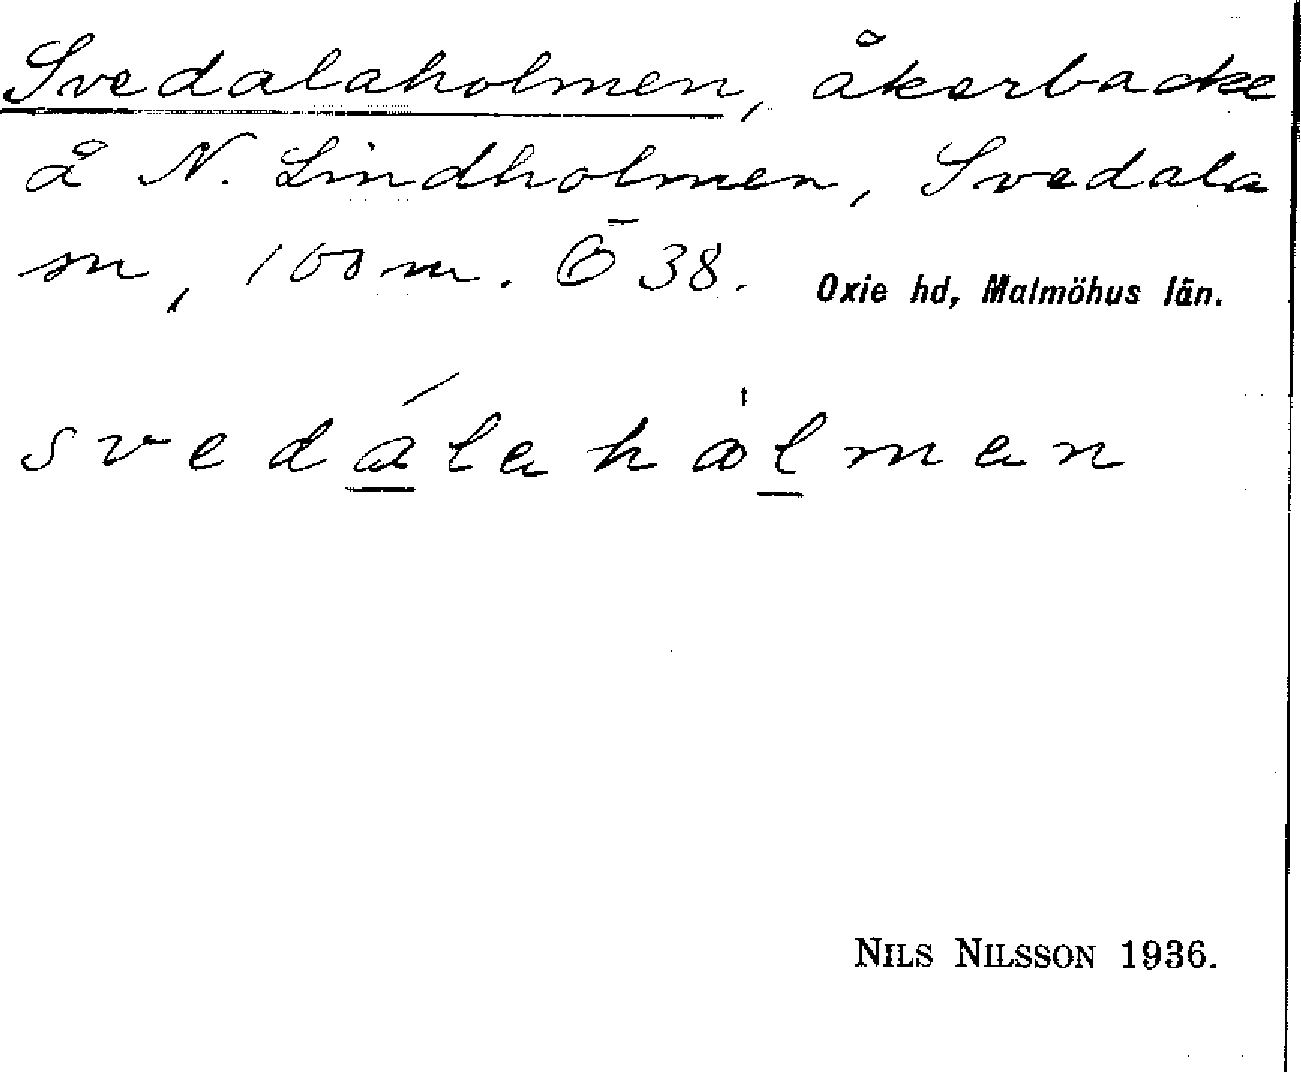 Svedalaholmen, åkerbacke
å N. Lindholmen, Svedala
sn, 100 m. Ö 38. Oxie hd, Malmöhus län.
svedálahålmen
NILS NILSSON 1936.